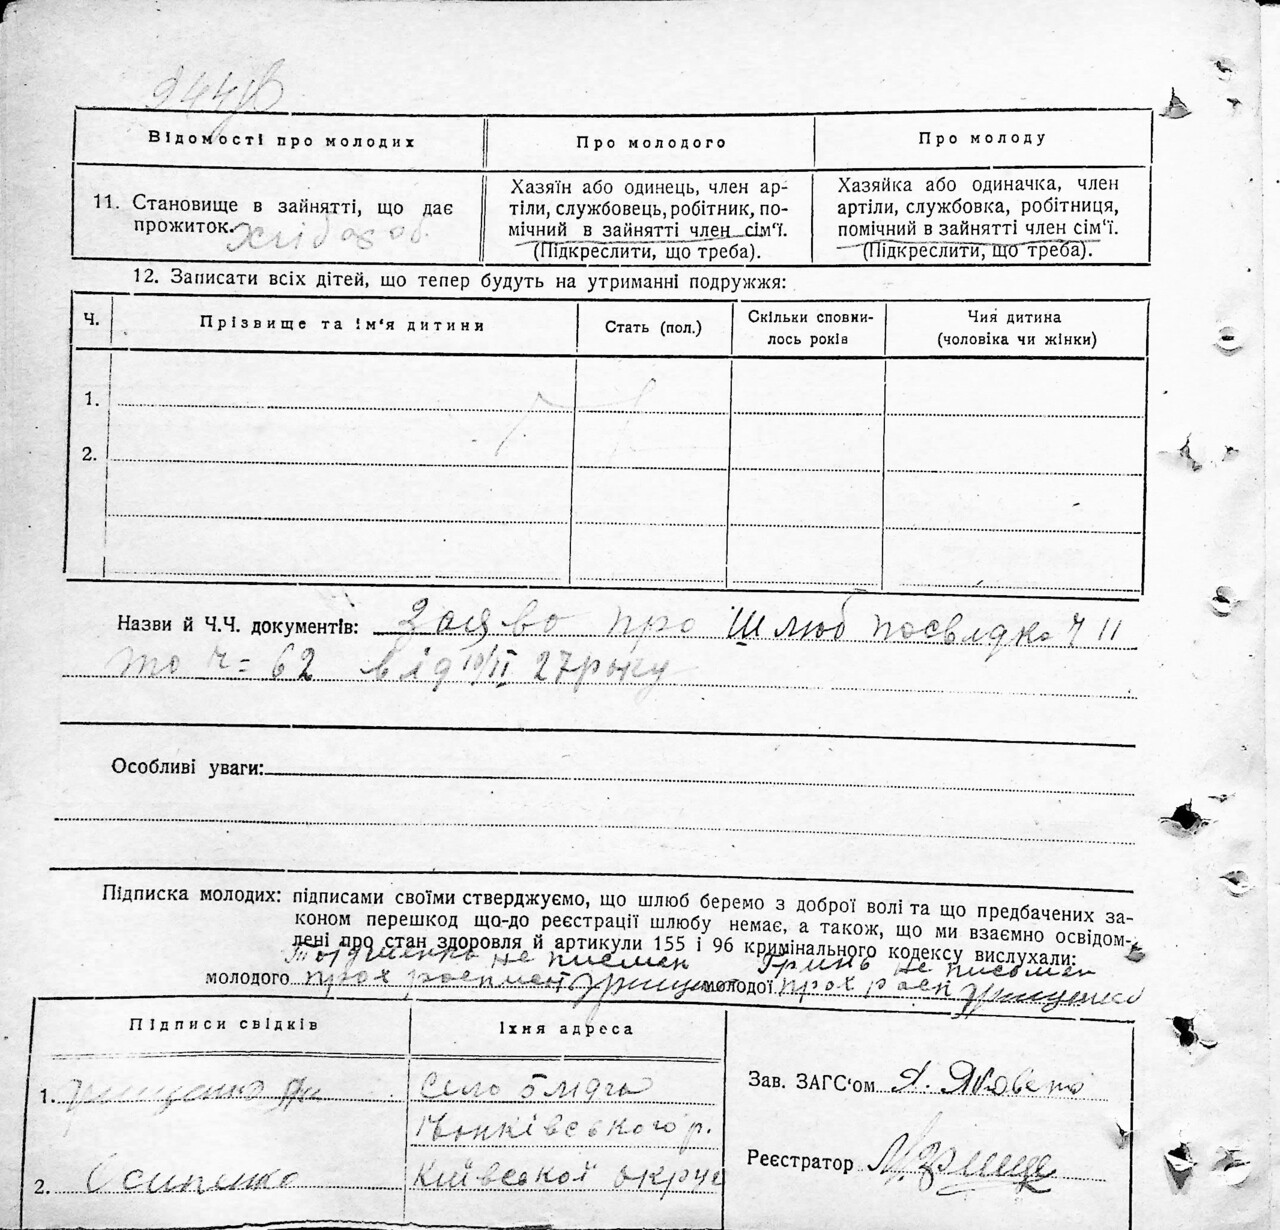 Відомості про молодих
Про молодого
Про молоду
11. Становище в зайнятті, що дає
прожиток. Хлібороб.
Хазяїн або одинець, член ар-
тіли, службовець, робітник, по-
мічний в зайнятті член сім'ї.
(Підкреслити, що треба).
Хазяйка або одиначка, член
артіли, службовка, робітниця,
помічний в зайнятті член сім'ї.
(Підкреслити, що треба).
12. Записати всіх дітей, що тепер будуть на утриманні подружжя:
Ч.
Прізвище та ім'я дитини
Стать (пол.)
Скільки сповни-
лось років
Чия дитина
(чоловіка чи жінки)
1.
2.
Назви й Ч.Ч. документів: Заява про шлюб посвідка Ч 11
та Ч= 62 від 10/II 27 року
Особливі уваги:
Підписка молодих: підписами своїми стверджуємо, що шлюб беремо з доброї волі та що предбачених за-
коном перешкод що-до реєстрації шлюбу немає, а також, що ми взаємно освідом-
лені про стан здоровля й артикули 155 і 96 кримінального кодексу вислухали:
не писмен Гринь не письмен
молодого Грищенко молодої Грищенко
Підписи свідків
Їхня адреса
1. Грищенко
Село
р.
2. Осипенко
Київської округи
Зав. ЗАГС'ом Я. Яковенко
Реєстратор